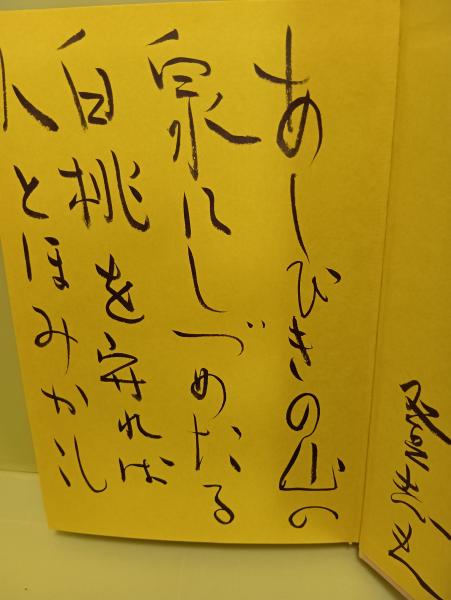 あしびきの山の
泉にしづめたる
白桃を守れば
人とほみかも